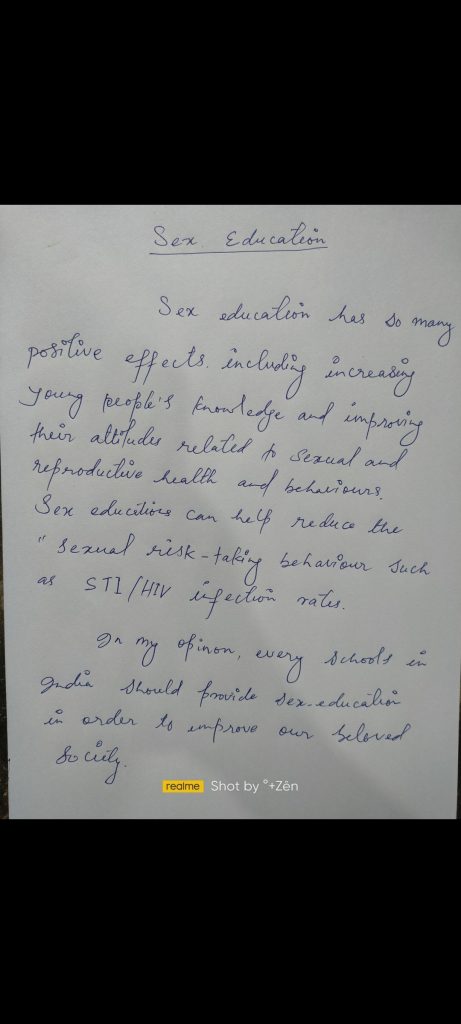 Sex Education
Sex education has so many
positive effects. including increasing
young people's knowledge and improving
their attitudes related to sexual and
reproductive health and behaviours.
Sex educations can help reduce the
" sexual risk-taking behaviour such
as STI/HIV infection rates.
In my opinon, every schools in
India should provide sex-education
in order to improve our beloved
society.
realme Shot by °+Zên